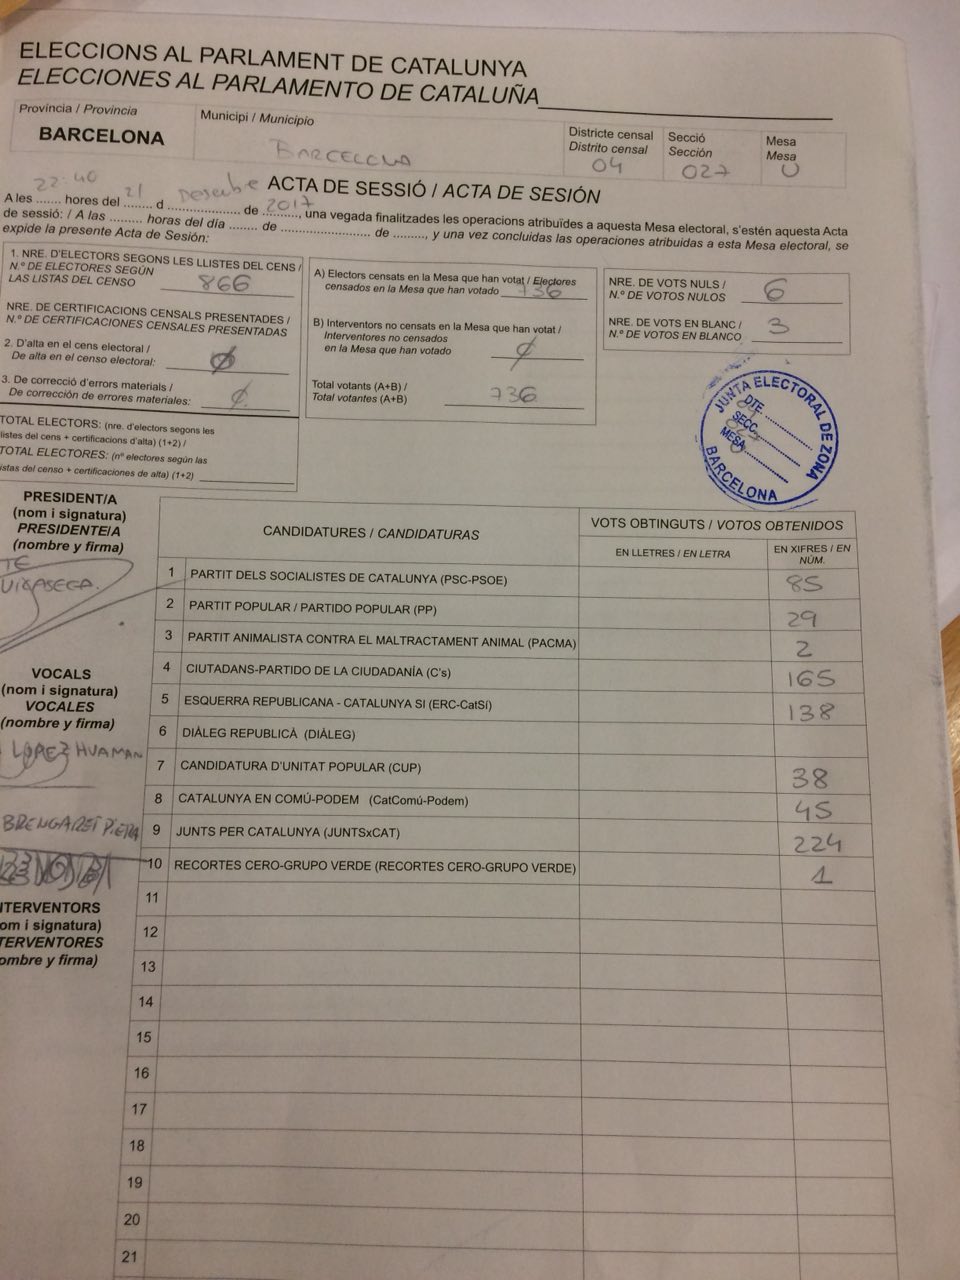 ELECCIONS AL PARLAMENT DE CATALUNYA
ELECCIONES AL PARLAMENTO DE CATALUÑA
Província / Provincia
BARCELONA
Municipi / Municipio
BARCELONA
Districte censal
Distrito censal
04
Secció
Sección
027
Mesa
Mesa
U
ACTA DE SESSIÓ / ACTA DE SESIÓN
22:40 21 Desembre 2017
A les ....... hores del ........ d .................... de .........., una vegada finalitzades les operacions atribuïdes a aquesta Mesa electoral, s'estén aquesta Acta
de sessió: / A las ......... horas del día ........ de ......................... de ........., y una vez concluidas las operaciones atribuidas a esta Mesa electoral, se
expide la presente Acta de Sesión:
1. NRE. D'ELECTORS SEGONS LES LLISTES DEL CENS /
N.º DE ELECTORES SEGÚN
LAS LISTAS DEL CENSO 866
NRE. DE CERTIFICACIONS CENSALS PRESENTADES /
N.º DE CERTIFICACIONES CENSALES PRESENTADAS
2. D'alta en el cens electoral /
De alta en el censo electoral: Ø
3. De correcció d'errors materials /
De corrección de errores materiales: Ø
TOTAL ELECTORS: (nre. d'electors segons les
listes del cens + certificacions d'alta) (1+2) /
TOTAL ELECTORES: (nº electores según las
istas del censo + certificaciones de alta) (1+2)
A) Electors censats en la Mesa que han votat / Electores
censados en la Mesa que han votado 736
B) Interventors no censats en la Mesa que han votat /
Interventores no censados
en la Mesa que han votado Ø
Total votants (A+B) /
Total votantes (A+B) 736
NRE. DE VOTS NULS /
N.º DE VOTOS NULOS 6
NRE. DE VOTS EN BLANC /
N.º DE VOTOS EN BLANCO 3
JUNTA ELECTORAL DE ZONA
DTE.
SECC.
MESA
BARCELONA
PRESIDENT/A
(nom i signatura)
PRESIDENTE/A
(nombre y firma)
VOCALS
(nom i signatura)
VOCALES
(nombre y firma)
LOPEZ HUAMAN
NTERVENTORS
om i signatura)
TERVENTORES
ombre y firma)
CANDIDATURES / CANDIDATURAS
VOTS OBTINGUTS / VOTOS OBTENIDOS
EN LLETRES / EN LETRA
EN XIFRES / EN
NÚM.
1 PARTIT DELS SOCIALISTES DE CATALUNYA (PSC-PSOE) 85
2 PARTIT POPULAR / PARTIDO POPULAR (PP) 29
3 PARTIT ANIMALISTA CONTRA EL MALTRACTAMENT ANIMAL (PACMA) 2
4 CIUTADANS-PARTIDO DE LA CIUDADANÍA (C's) 165
5 ESQUERRA REPUBLICANA - CATALUNYA SI (ERC-CatSí) 138
6 DIÀLEG REPUBLICÀ (DIÀLEG)
7 CANDIDATURA D'UNITAT POPULAR (CUP) 38
8 CATALUNYA EN COMÚ-PODEM (CatComú-Podem) 45
9 JUNTS PER CATALUNYA (JUNTSxCAT) 224
10 RECORTES CERO-GRUPO VERDE (RECORTES CERO-GRUPO VERDE) 1
11
12
13
14
15
16
17
18
19
20
21